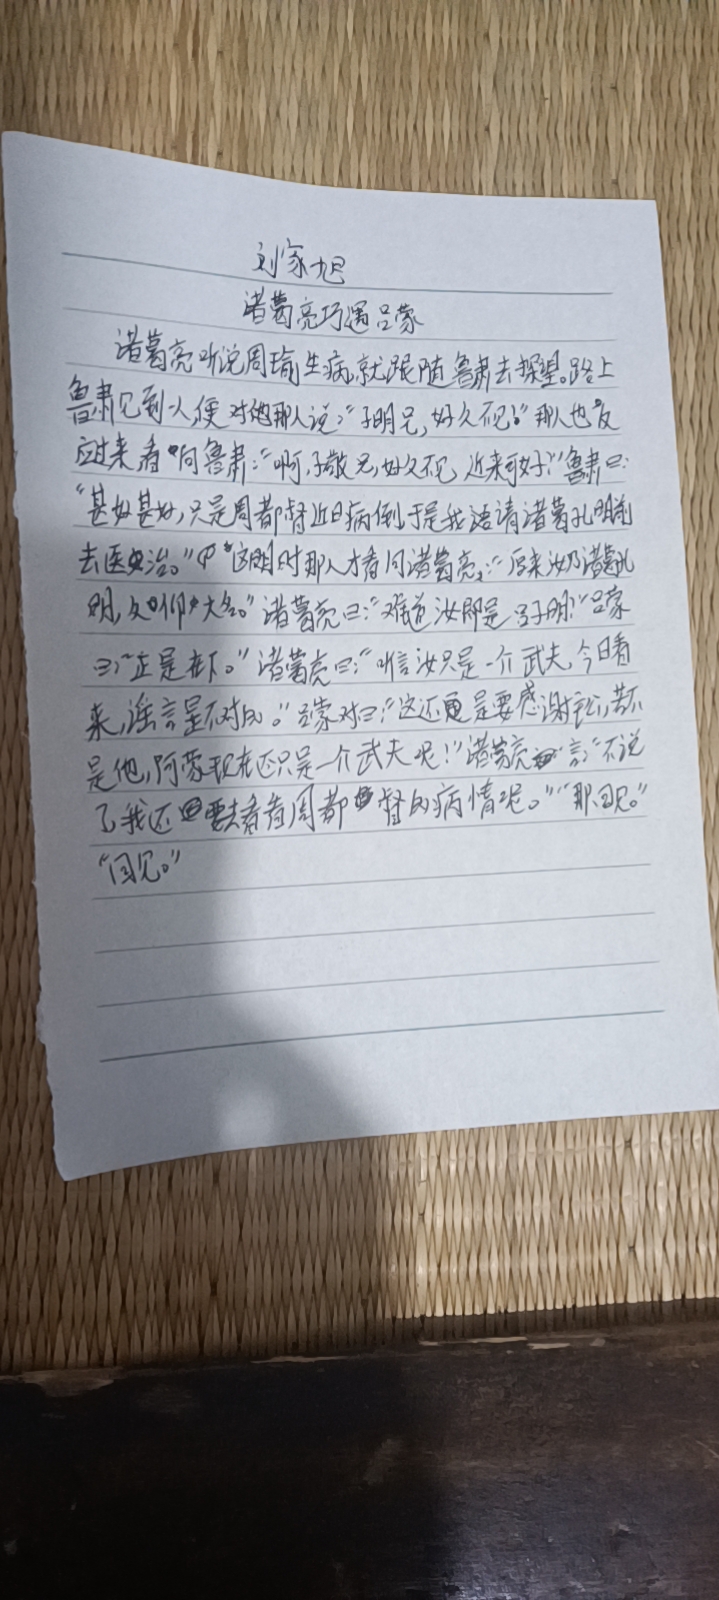 刘家旭
诸葛亮巧遇吕蒙
诸葛亮听说周瑜生病,就跟随鲁肃去探望。路上
鲁肃见到一人,便对他那人说:“子明兄,好久不见!”那人也反
应过来看向鲁肃:“啊,子敬兄,好久不见,近来可好?”鲁肃曰:
“甚好甚好,只是周都督近日病倒于是我请诸葛孔明前
去医治。”这时那人才看向诸葛亮:“后来汝乃诸葛孔
明,久仰大名。”诸葛亮曰:“难道汝即是吕子明?”吕蒙
曰:“正是在下。”诸葛亮曰:“听言汝只是一介武夫,今日看
来,谣言是不对的。”吕蒙对曰:“这还是要感谢主公,若不
是他,阿蒙现在还只是一介武夫呢!”诸葛亮言:“不说
了我还要去看看周都督的病情呢。”“那,回见。”
“回见。”